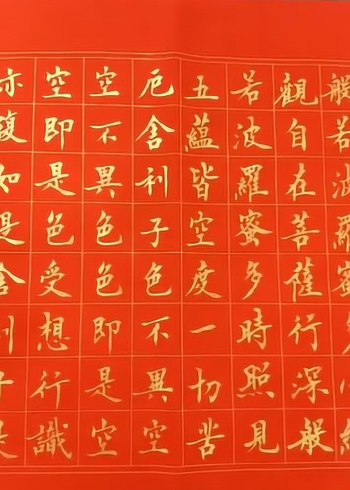 般若波羅蜜
觀自在菩薩行深般
若波羅蜜多時照見
五蘊皆空度一切苦
厄舍利子色不異空
空不異色色即是空
空即是色受想行識
亦復如是舍利子是